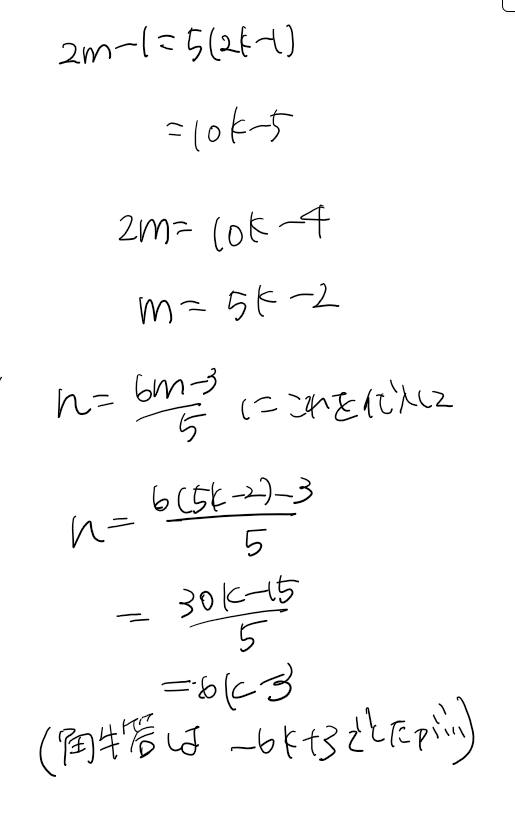 2m-1=5(2k-1)
=10k-5
2m=10k-4
m=5k-2
n=\frac{6m-3}{5} にこれを代入して
n=\frac{6(5k-2)-3}{5}
=\frac{30k-15}{5}
=6k-3
(解答は -6k+3